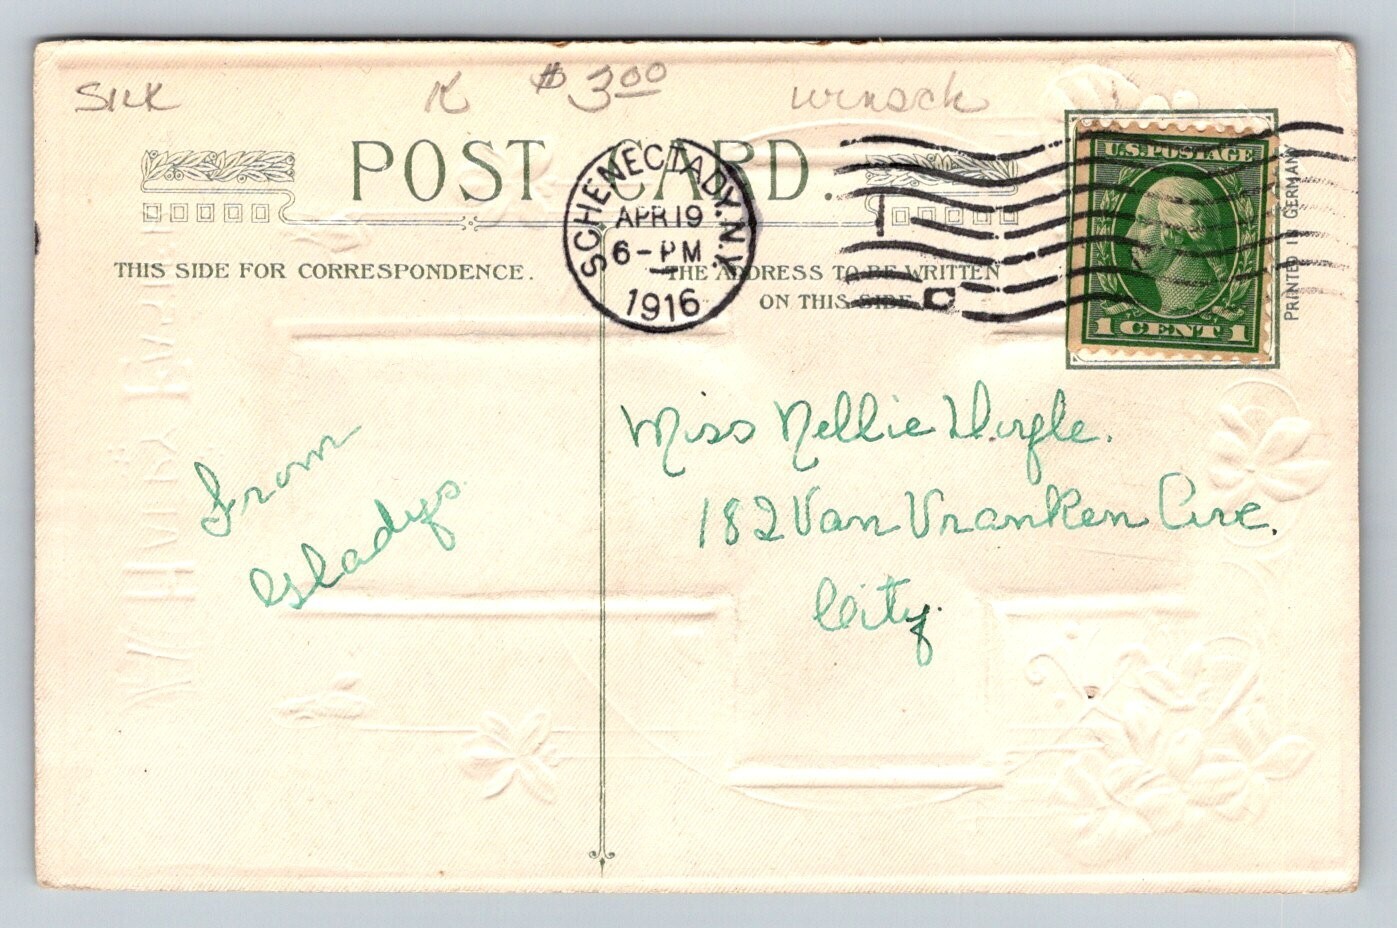 SILK K $3.00 Winsch
POST CARD.
SCHENECTADY. N.Y.
APR 19
6-PM
1916
U.S. POSTAGE
1 CENT 1
PRINTED IN GERMANY
THIS SIDE FOR CORRESPONDENCE.
THE ADDRESS TO BE WRITTEN
ON THIS SIDE.
From
Gladys.
Miss Nellie
182 Van Vranken Ave.
City.